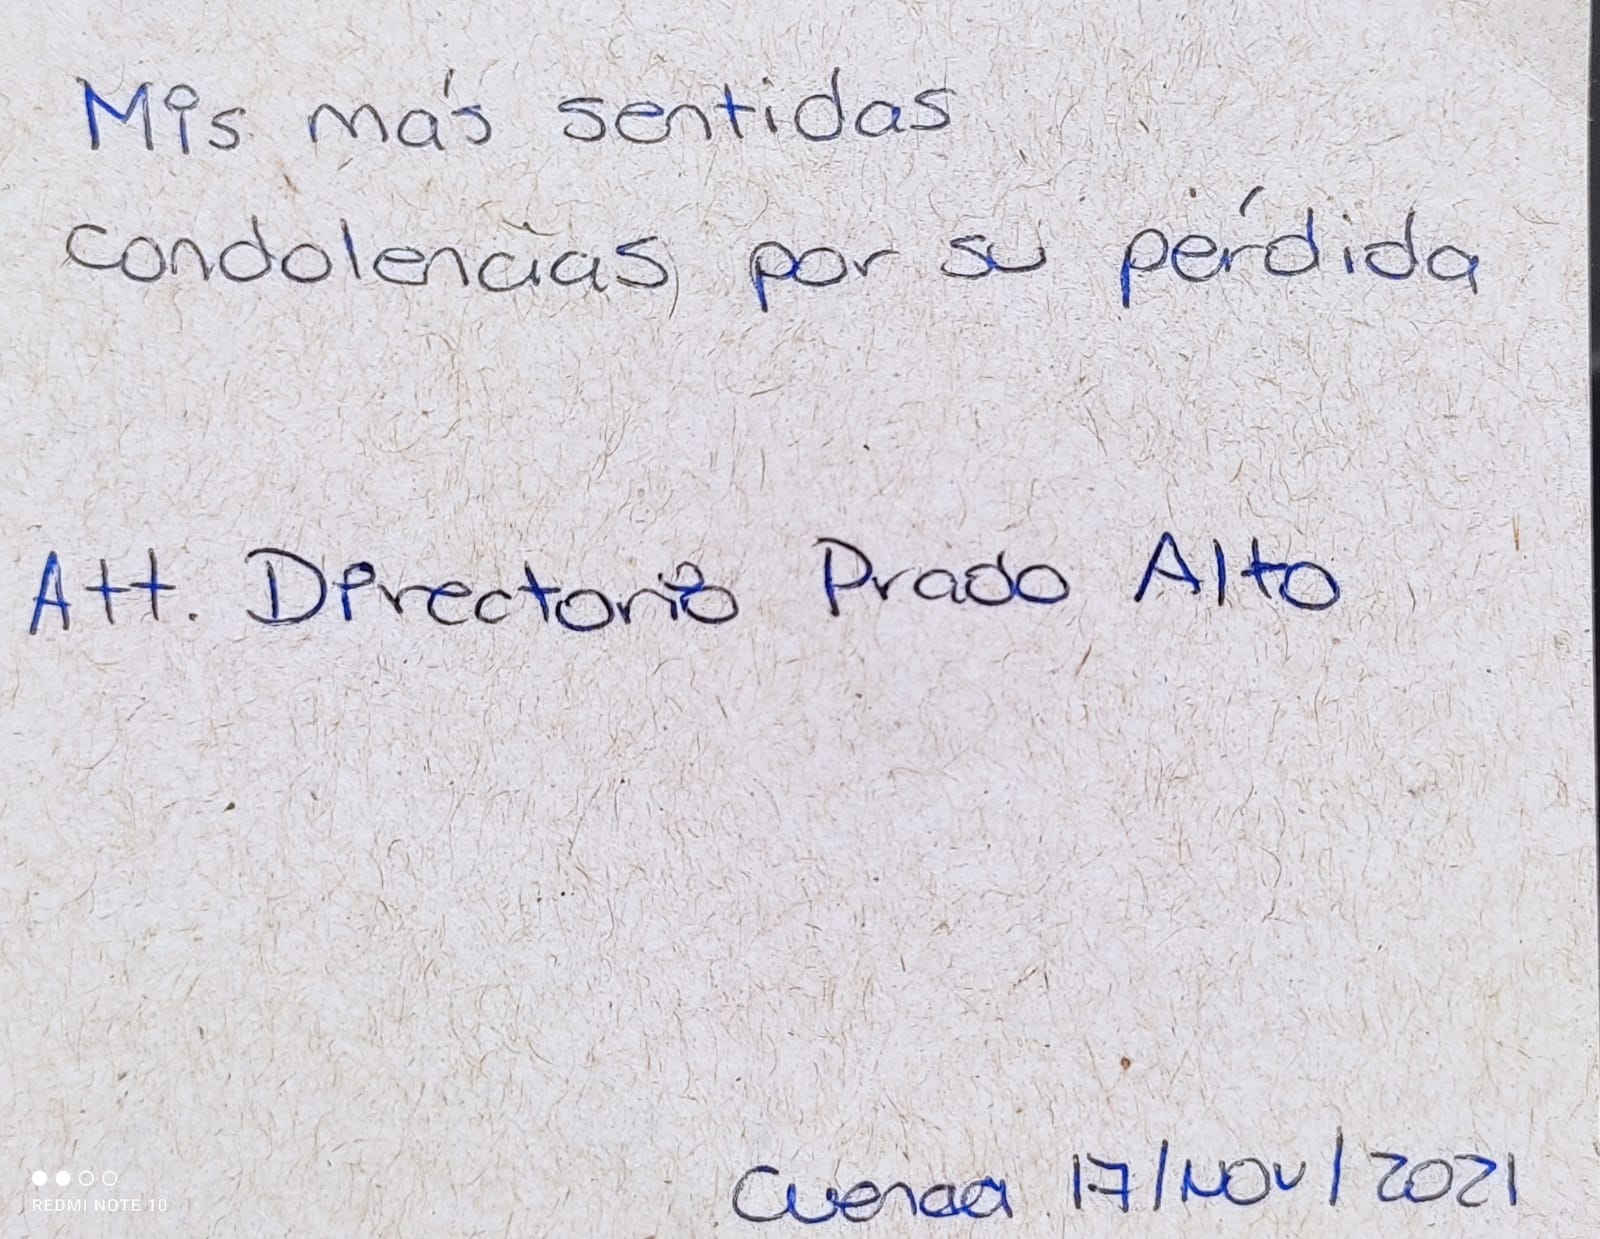 Mis más sentidas
condolencias por su pérdida
Att. Directorio Prado Alto
Cuenca 17/NOV/2021
REDMI NOTE 10